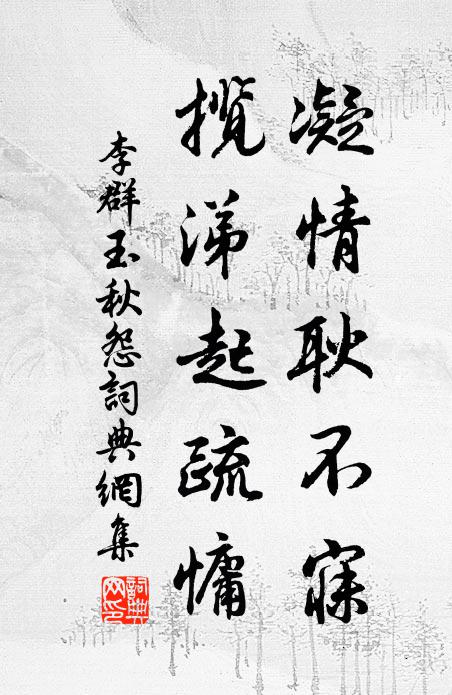 凝情耿不寐
攬涕起疏慵
李群玉秋怨詞典網集
詞典网印